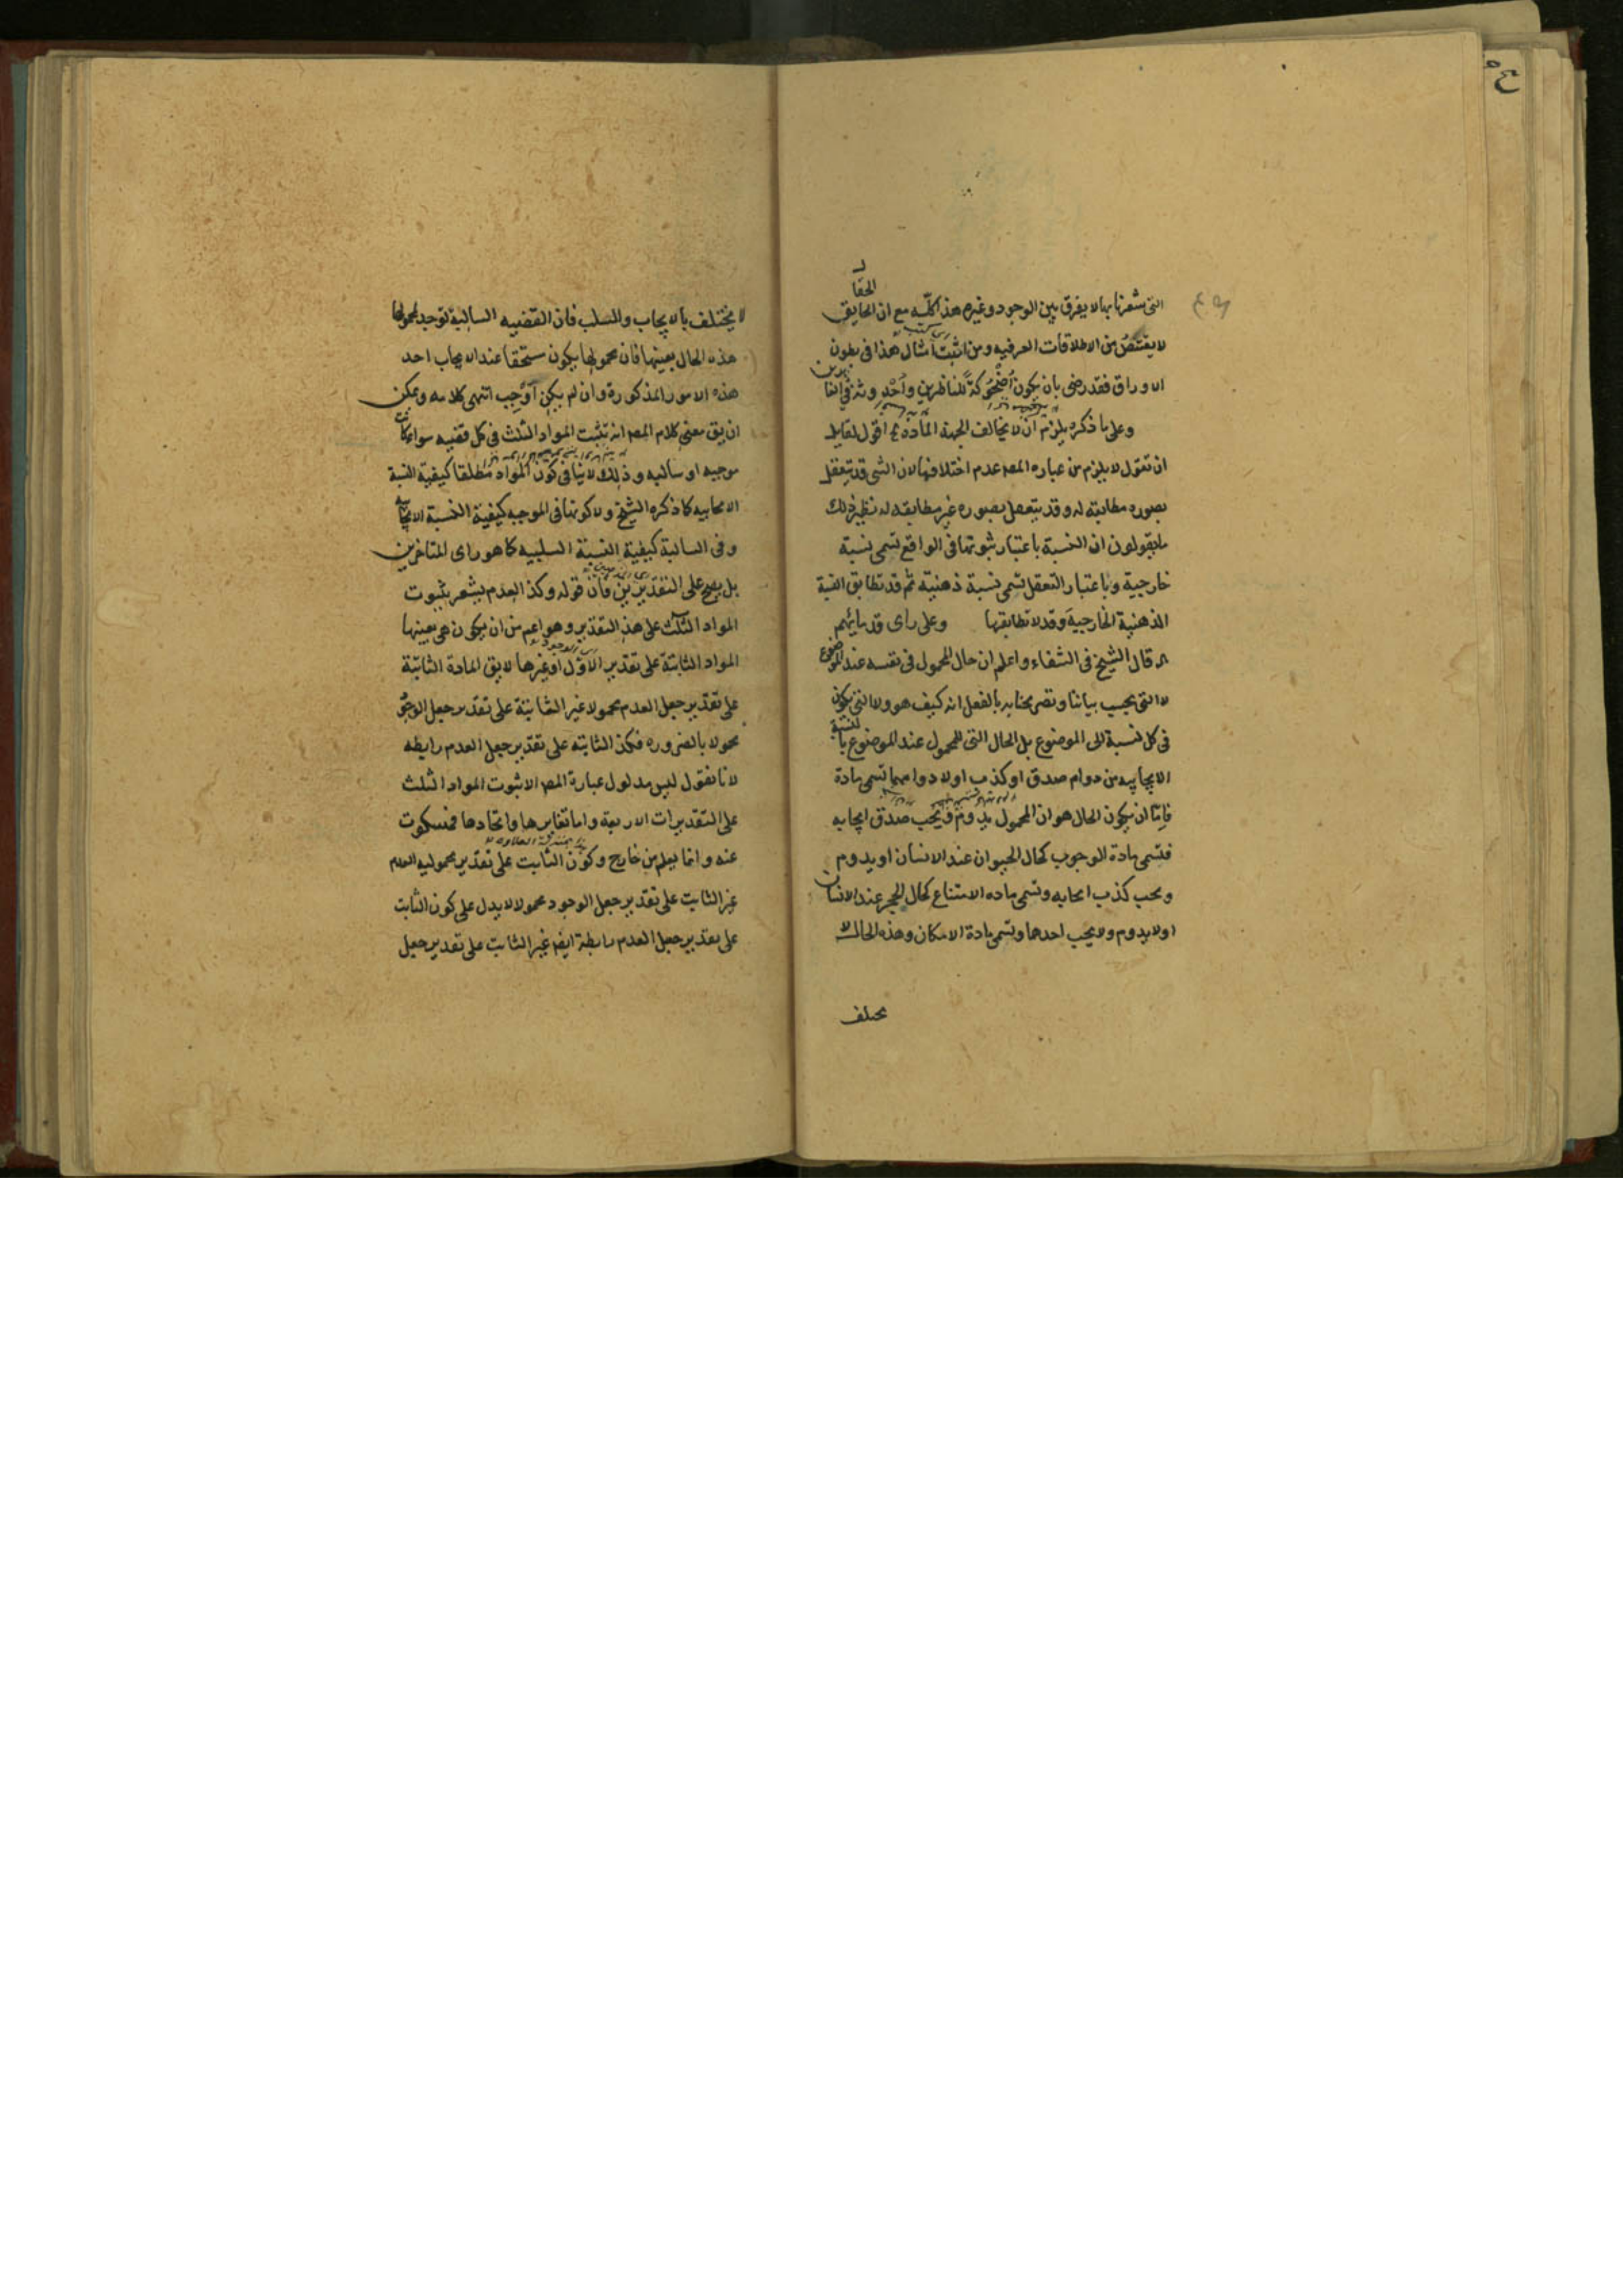 التى شعرنا بها لا يفرق بين الوجود وغيره هذا كله مع ان الحقايق
لا يقتنص من الاطلاقات العرفيه ومن اثبت امثال هذا فى بطون
الاوراق فقد رضى بان يكون اضحوكة للناظرين واحدوثة فى الغابرين
وعلى ما ذكره يلزم ان لا يخالف الجهة المادة اقول لقايل
ان تقول لا يلزم من عباره المص عدم اختلافها لان الشى قد يتعقل
بصوره مطابقه له وقد يتعقل بصوره غير مطابقه له نظير ذلك
ما يقولون ان النسبة باعتبار ثبوتها فى الواقع تسمى نسبة
خارجية وباعتبار التعقل تسمى نسبة ذهنية ثم قد تطابق النسبة
الذهنية الخارجية وقد لا تطابقها وعلى راى قدمائهم
قال الشيخ فى الشفاء واعلم ان حال المحمول فى نفسه عند الموضوع
لا التى بحسب بياننا وتصريحنا به بالفعل انه كيف هو ولا التى يكون
فى كل نسبة الى الموضوع بل الحال التى للمحمول عند الموضوع بالنسبة
الايجابيه من دوام صدق او كذب او لا دوامهما تسمى مادة
فاما ان يكون الحال هو ان المحمول يدوم ويجب صدق ايجابه
فتسمى مادة الوجوب كحال الحيوان عند الانسان او يدوم
ويجب كذب ايجابه وتسمى ماده الامتناع كحال الحجر عند الانسان
او لا يدوم ولا يجب احدهما وتسمى مادة الامكان وهذه الحال لا
يختلف
لا يختلف بالايجاب والسلب فان القضيه السالبة توجد لمحمولها
هذه الحال بعينها فان محمولها يكون مستحقا عند الايجاب احد
هذه الامور المذكورة وان لم يكن اوجب انتهى كلامه ويمكن
ان يق معنى كلام المص انه تثبت المواد الثلث فى كل قضيه سواء كانت
موجبه او سالبه وذلك لا ينافى كون المواد مطلقا كيفية النسبة
الايجابيه كما ذكره الشيخ ولا كونها فى الموجبه كيفية النسبة الايجابيه
وفى السالبة كيفية النسبة السلبيه كما هو راى المتاخرين
بل يصح على التقديرين فان قوله وكذا العدم يشعر بثبوت
المواد الثلث على هذا التقدير وهو اعم من ان يكون هى بعينها
المواد الثابتة على تقدير الاول او غيرها لا يق المادة الثابتة
على تقدير جعل العدم محمولا غير الثابتة على تقدير جعل الوجود
محمولا بالضروره فكذا الثابته على تقدير جعل العدم رابطه
لانا نقول ليس مدلول عبارة المص الا ثبوت المواد الثلث
على التقديرات الاربعه واما تغايرها واتحادها فمسكوت
عنه وانما يعلم من خارج وكون الثابت على تقدير محموليه العدم
غير الثابت على تقدير جعل الوجود محمولا لا يدل على كون الثابت
على تقدير جعل العدم رابطة ايضا غير الثابت على تقدير جعل